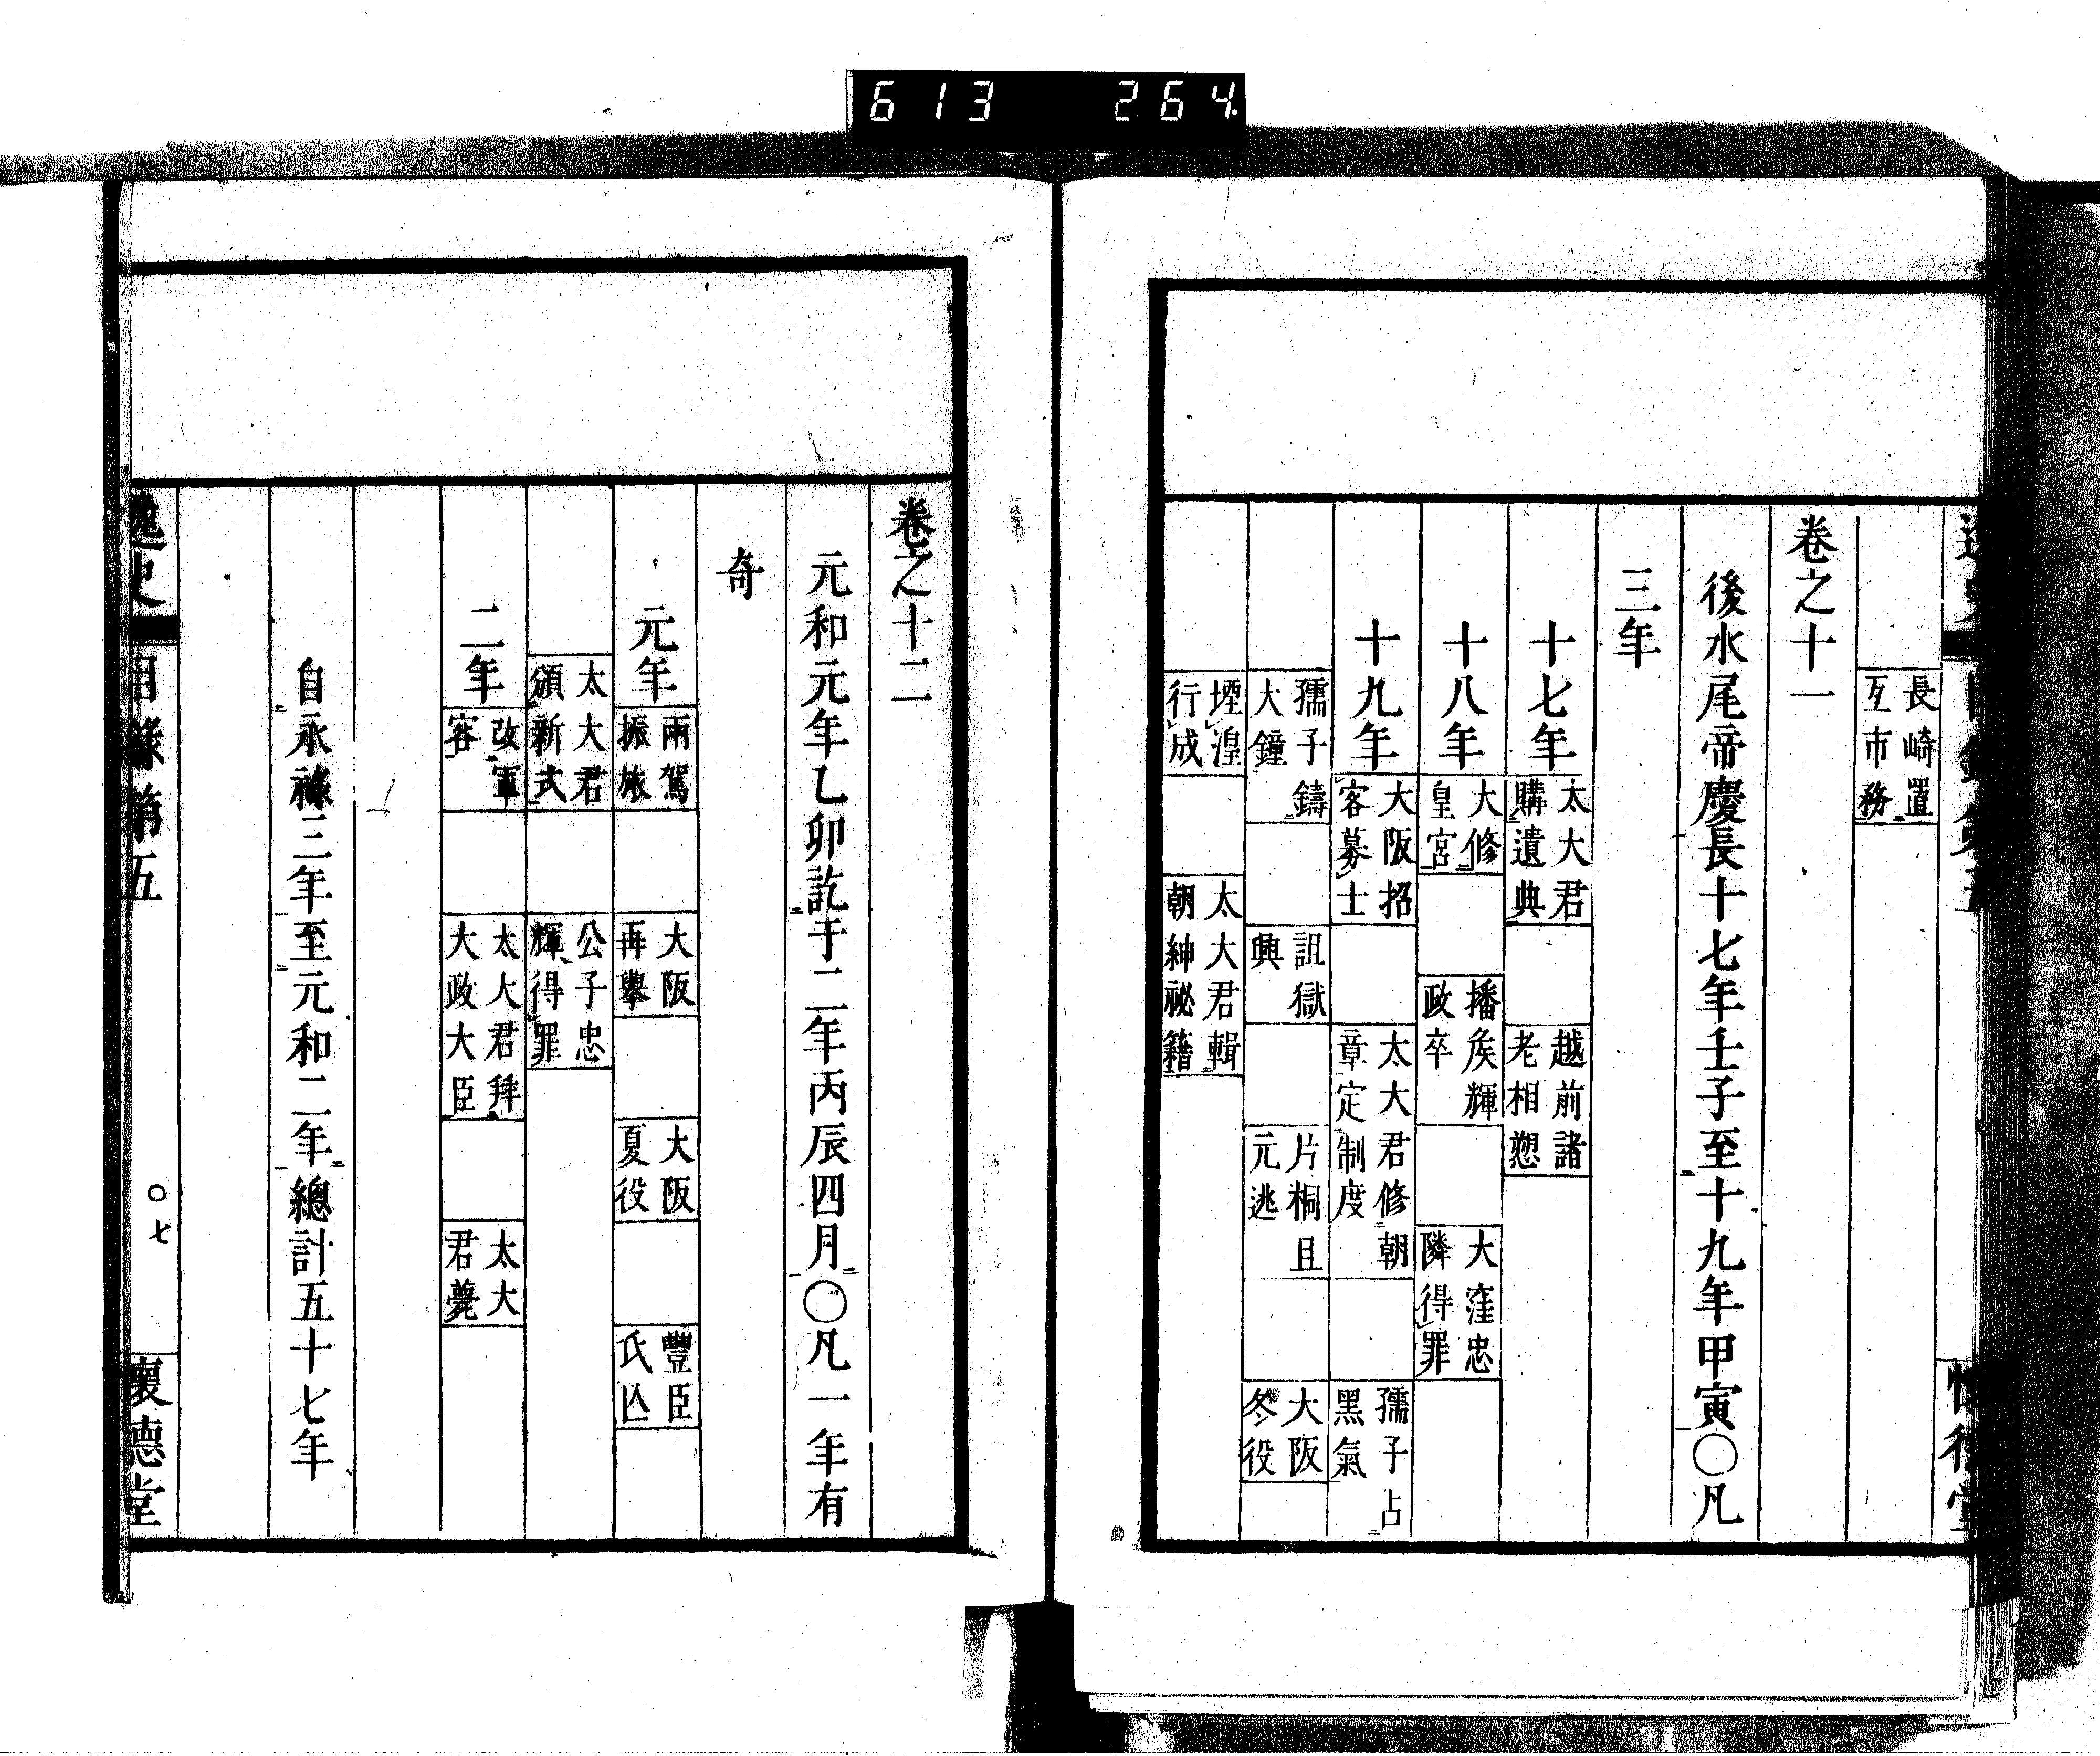 613 264
長崎置
互市務
卷之十一
後水尾帝慶長十七年壬子至十九年甲寅〇凡
三年
十七年
太大君
購遺典
越前諸
老相愬
十八年
大修
皇宮
播矦輝
政卒
大窪忠
隣得罪
十九年
大阪招
客募士
太大君修朝
章定制度
孺子占
黑氣
孺子鑄
大鐘
詛獄
興
片桐且
元逃
大阪
冬役
堙湟
行成
太大君輯
朝紳祕籍
卷之十二
元和元年乙卯訖于二年丙辰四月〇凡一年有
奇
元年
兩駕
振旅
大阪
再舉
大阪
夏役
豐臣
氏亾
太大君
頒新式
公子忠
輝得罪
二年
改軍
容
太大君拜
大政大臣
太大
君薨
自永祿三年至元和二年總計五十七年
逸史
目錄第五
〇七
懷德堂